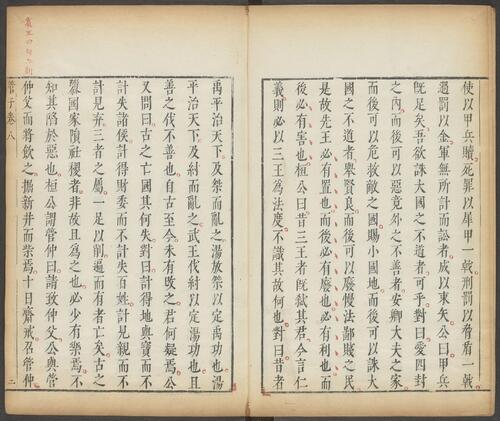 使以甲兵贖死罪以犀甲一戟刑罰以脅盾一戟
過罰以金軍無所計而訟者成以束矢公曰甲兵
既足矣吾欲誅大國之不道者可乎對曰愛四封
之內而後可以惡竟外之不善者安卿大夫之家
而後可以危救敵之國賜小國地而後可以誅大
國之不道者舉賢良而後可以廢慢法鄙賤之民
是故先王必有置也而後必有廢也必有利也而
後必有害也桓公曰昔三王者既弑其君今言仁
義則必以三王為法度不識其故何也對曰昔者
禹平治天下及桀而亂之湯放桀以定禹功也湯
平治天下及紂而亂之武王伐紂以定湯功也且
善之伐不善也自古至今未有改之君何疑焉公
又問曰古之亡國其何失對曰計得地與寶而不
計失諸侯計得財委而不計失百姓計見親而不
計見弃三者之屬一足以削遍而有者亡矣古之
隳國家隕社稷者非故且為之也必少有樂焉不
知其陷於惡也桓公謂管仲曰請致仲父公與管
仲父而將飲之掘新井而柴焉十日齋戒召管仲
管子卷八
二